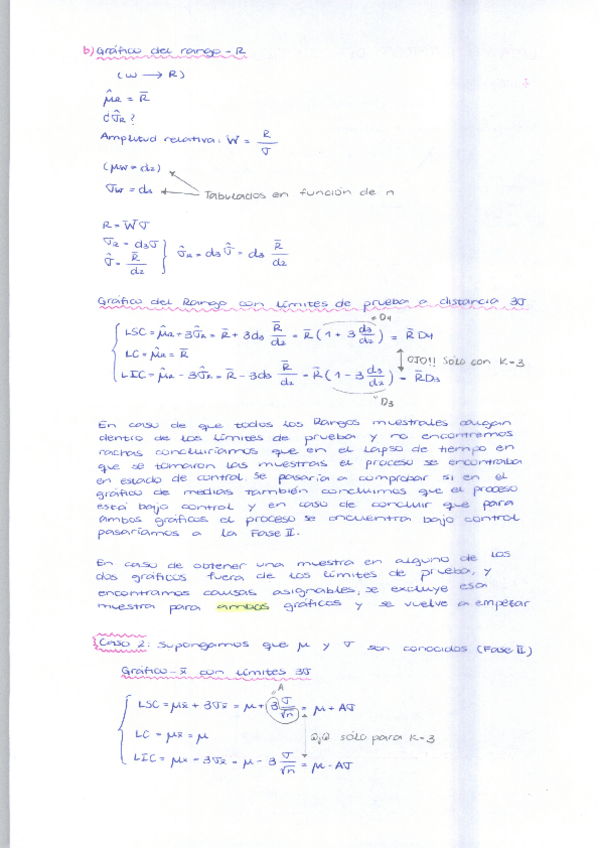 b) Gráfico del rango - R
(w → R)
μ̂R = R̄
¿σ̂R?
Amplitud relativa: W = R/σ
(μw = d2)
σw = d3
Tabulados en función de n
R = Wσ
σR = d3σ
σ̂ = R̄/d2
σ̂R = d3σ̂ = d3 R̄/d2
Gráfico del Rango con límites de prueba a distancia 3σ
= D4
LSC = μ̂R + 3σ̂R = R̄ + 3d3 R̄/d2 = R̄(1 + 3 d3/d2) = R̄D4
LC = μ̂R = R̄
OJO!! Sólo con K=3
LIC = μ̂R - 3σ̂R = R̄ - 3d3 R̄/d2 = R̄(1 - 3 d3/d2) = R̄D3
= D3
En caso de que todos los Rangos muestrales caigan
dentro de los límites de prueba y no encontremos
rachas concluiríamos que en el lapso de tiempo en
que se tomaron las muestras el proceso se encontraba
en estado de control. Se pasaría a comprobar si en el
gráfico de medias también concluimos que el proceso
está bajo control y en caso de concluir que para
ambos gráficos el proceso se encuentra bajo control
pasaríamos a la Fase II.
En caso de obtener una muestra en alguno de los
dos gráficos fuera de los límites de prueba, y
encontramos causas asignables, se excluye esa
muestra para ambos gráficos y se vuelve a empezar
Caso 2: Supongamos que μ y σ son conocidos (Fase II)
Gráfico-x̄ con límites 3σ
A
LSC = μx̄ + 3σx̄ = μ + 3 σ/√n = μ + Aσ
LC = μx̄ = μ
sólo para K=3
LIC = μx̄ - 3σx̄ = μ - 3 σ/√n = μ - Aσ